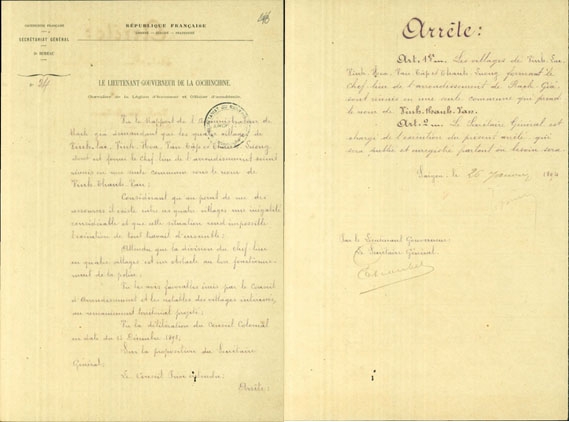 RÉPUBLIQUE FRANÇAISE
LIBERTÉ — ÉGALITÉ — FRATERNITÉ
SECRÉTARIAT GÉNÉRAL
BUREAU
LE LIEUTENANT-GOUVERNEUR DE LA COCHINCHINE,
Chevalier de la Légion d'honneur et Officier d'académie,
Vu le Rapport de l'Administrateur de
Rach Gia demandant que les quatre villages de
Vinh-lac, Vinh-Hoa, Van Tâp et Thanh Luong
dont est formé le Chef-lieu de l'arrondissement soient
réunis en une seule commune sous le nom de
Vinh-Thanh-Van;
Considérant qu'au point de vue des
ressources il existe entre ces quatre villages une inégalité
considérable et que cette situation rend impossible
l'exécution de tout travail d'ensemble;
Attendu que la division du chef-lieu
en quatre villages est un obstacle au bon fonctionne-
ment de la police;
Vu les avis favorables émis par le Conseil
d'Arrondissement et les notables des villages intéressés,
au remaniement territorial projeté;
Vu la délibération du Conseil Colonial
en date du 15 Décembre
Sur la proposition du Secrétaire
Général;
Le Conseil Privé entendu;
Arrête:
Arrête:
Art. 1er. Les villages de
Vinh-Hoa, Van Tâp et Thanh Luong, formant le
Chef-lieu de l'arrondissement de Rach-Gia
sont réunis en une seule commune qui prend
le nom de Vinh-Thanh-Van.
Art. 2. Le Secrétaire Général est
chargé de l'exécution du présent arrêté, qui
sera publié et enregistré partout où besoin sera.
Saigon, le 26
Par le Lieutenant Gouverneur:
Le Secrétaire Général